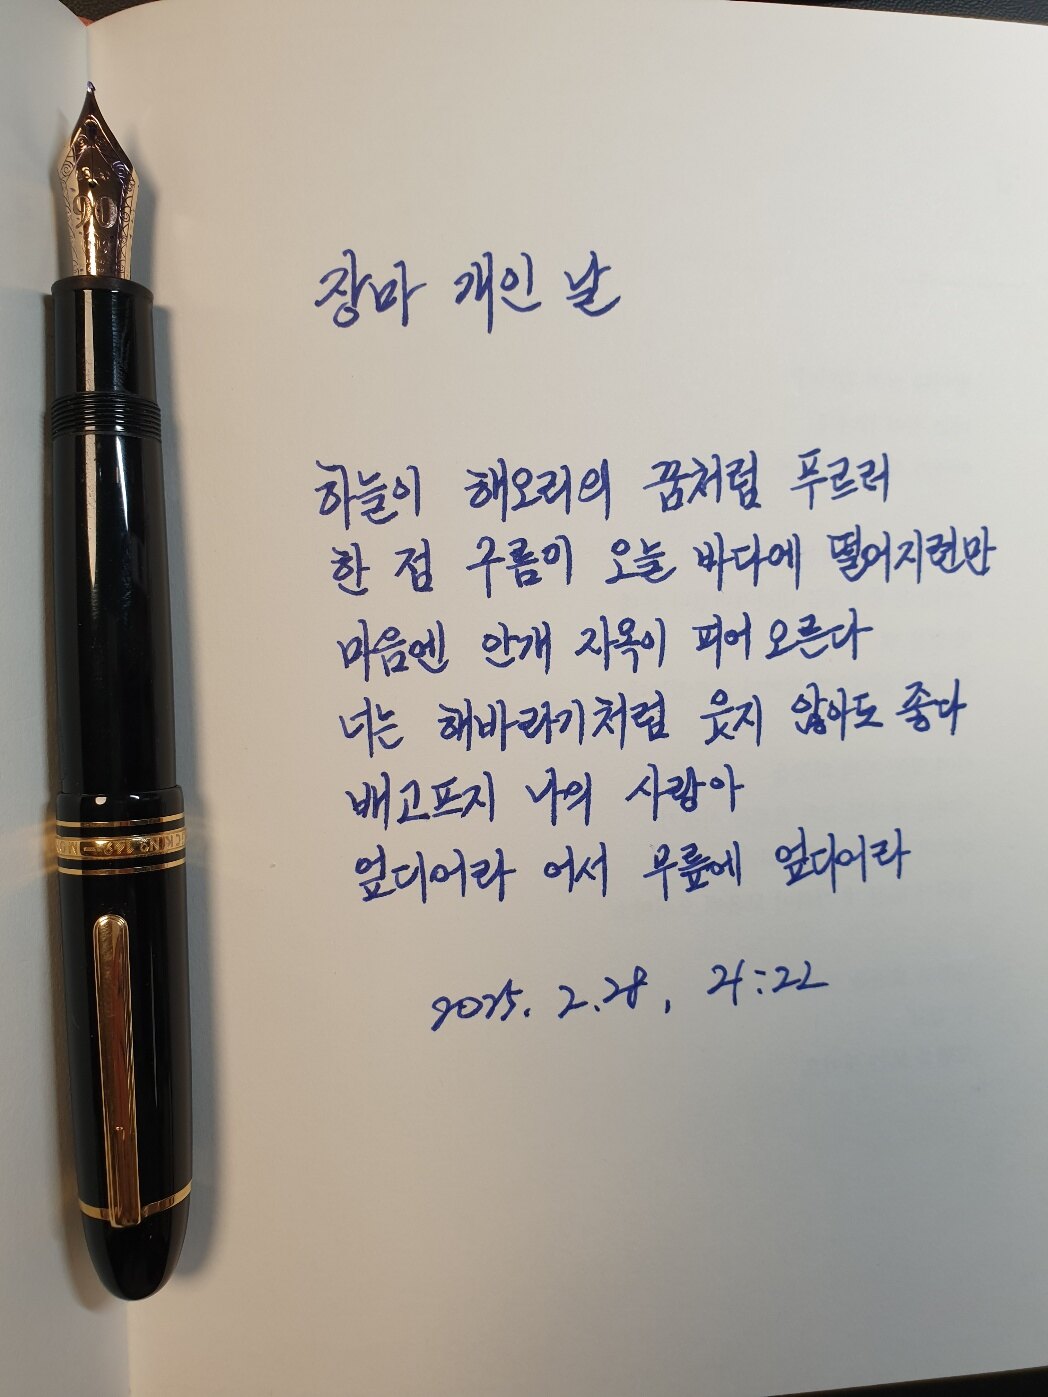 90
장마 개인 날
하늘이 해오리의 꿈처럼 푸르러
한 점 구름이 오늘 바다에 떨어지련만
마음엔 안개 자옥이 피어 오른다
너는 해바라기처럼 웃지 않아도 좋다
배고프지 나의 사람아
엎디어라 어서 무릎에 엎디어라
2025. 2. 28, 21:22